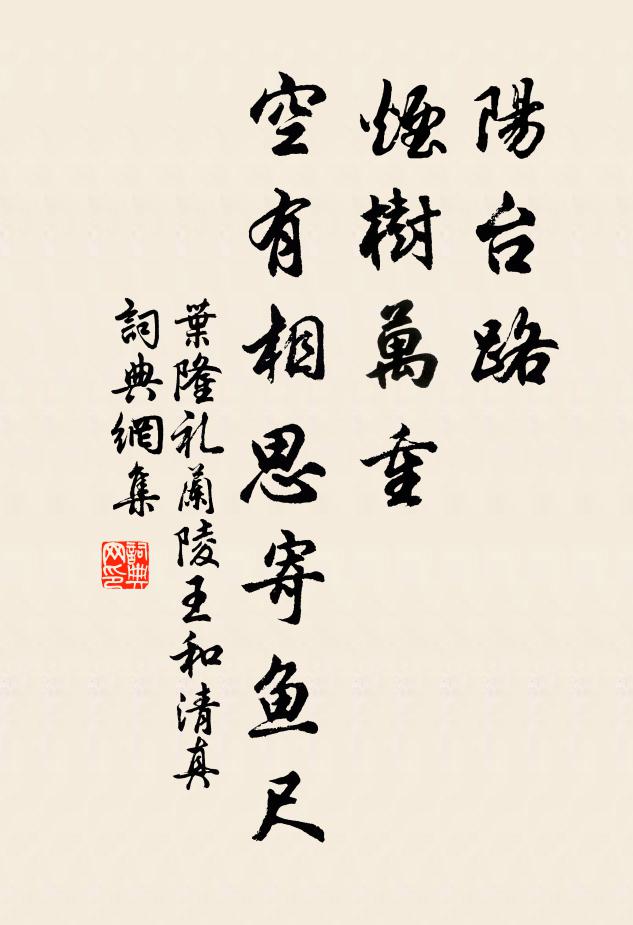 陽台路
煙樹萬重
空有相思寄鱼尺
葉隆礼蘭陵王和清真
詞典網集
詞典
网印